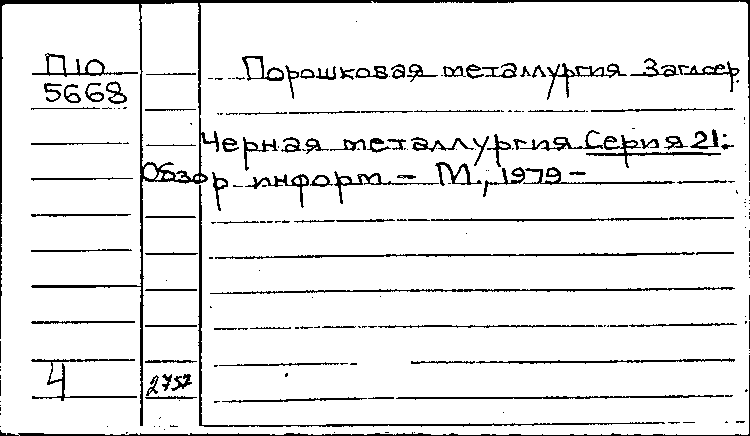 П10
5668
Порошковая металлургия Заг.сер.
Черная металлургия Серия 21:
Обзор информ – М., 1979 –
4
2757